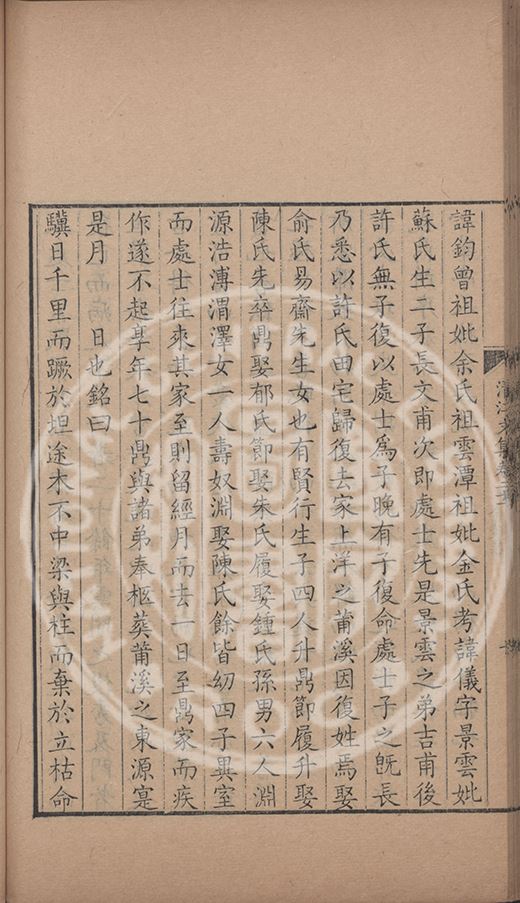 諱鈞曾祖妣余氏祖雲潭祖妣金氏考諱儀字景雲妣
蘇氏生二子長文甫次即處士先是景雲之弟吉甫後
許氏無子復以處士爲子晚有子復命處士子之既長
乃悉以許氏田宅歸復去家上洋之莆溪因復姓焉娶
俞氏易齋先生女也有賢行生子四人升鼎節履升娶
陳氏先卒鼎娶郁氏節娶朱氏履娶鍾氏孫男六人淵
源浩溥渭澤女一人壽奴淵娶陳氏餘皆幼四子異室
而處士往來其家至則留經月而去一日至鼎家而疾
作遂不起享年七十鼎與諸弟奉柩葬莆溪之東源寔
是月 日也銘曰
驥日千里而蹶於坦途木不中梁與柱而棄於立枯命